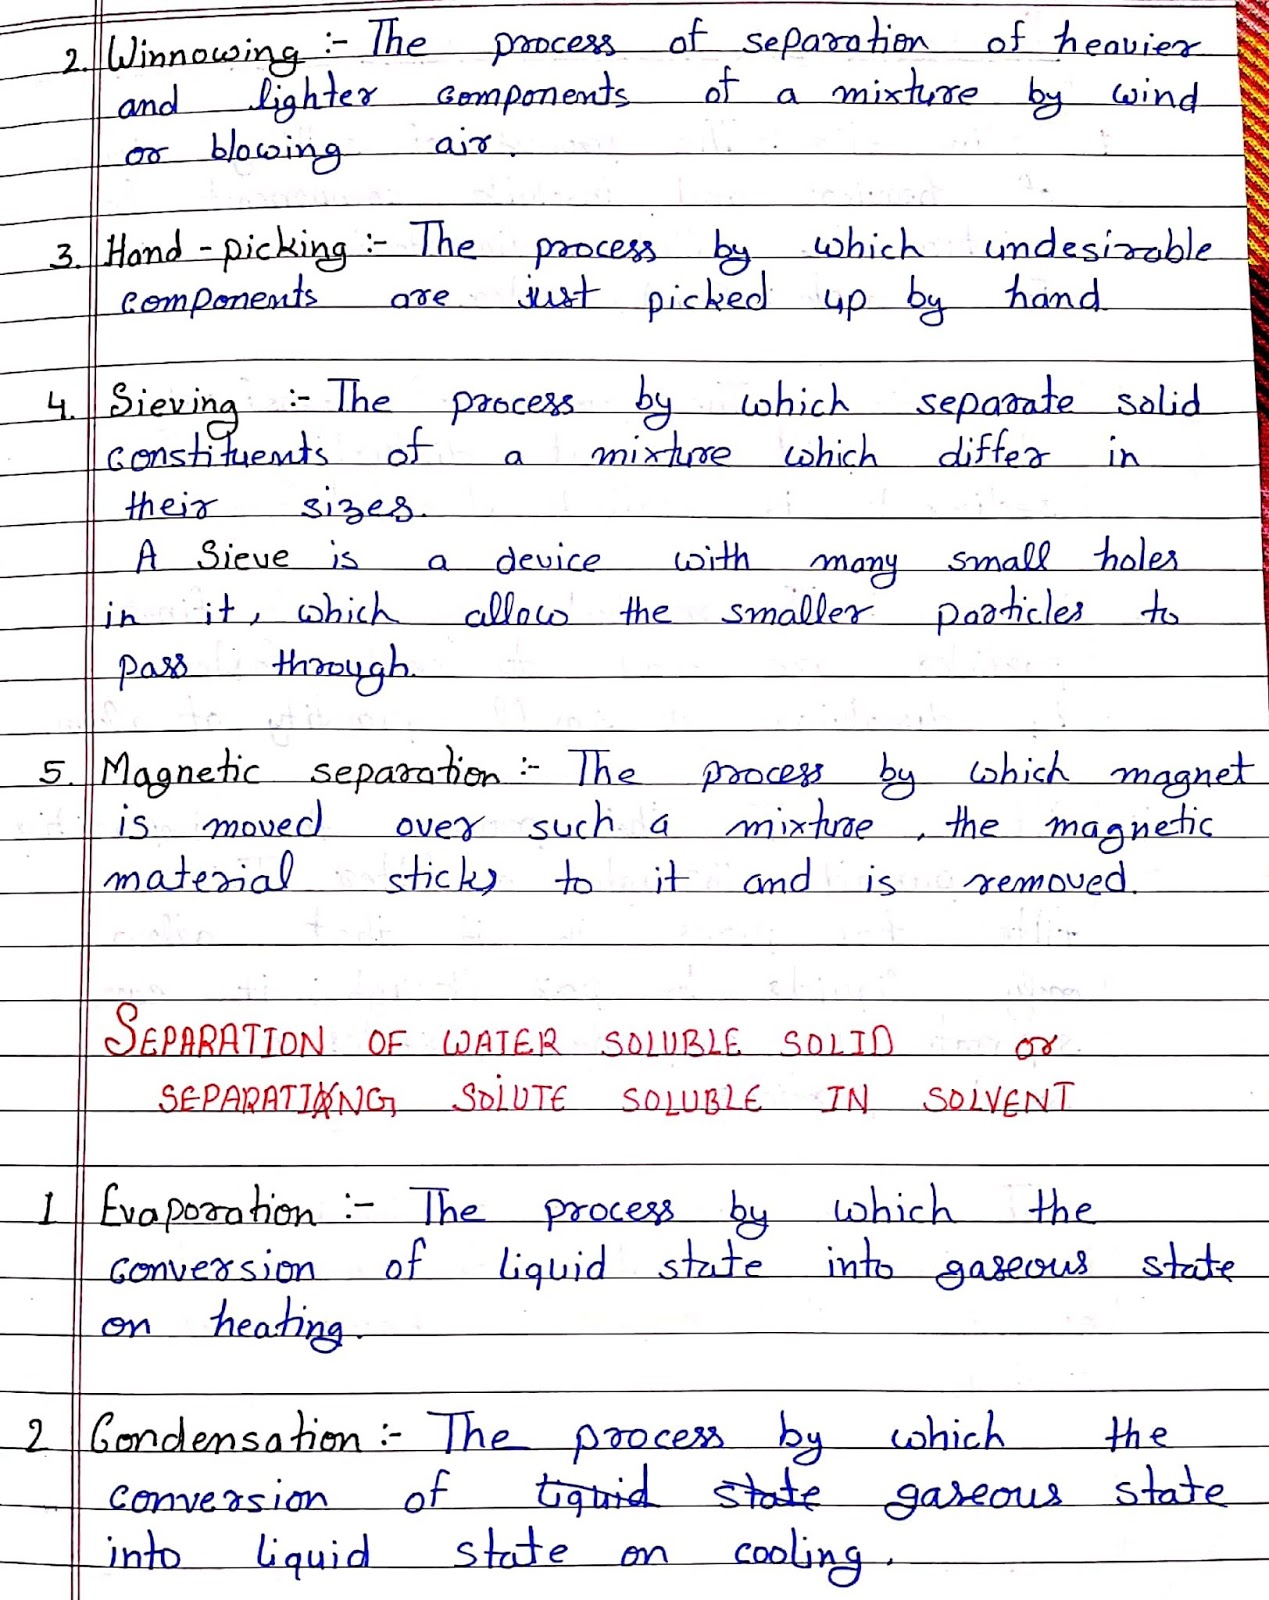 2. Winnowing :- The process of separation of heavier
and lighter components of a mixture by wind
or blowing air.
3. Hand-picking :- The process by which undesirable
components are just picked up by hand
4. Sieving :- The process by which separate solid
constituents of a mixture which differ in
their sizes.
A Sieve is a device with many small holes
in it, which allow the smaller particles to
pass through.
5. Magnetic separation :- The process by which magnet
is moved over such a mixture, the magnetic
material sticks to it and is removed.
SEPARATION OF WATER SOLUBLE SOLID or
SEPARATING SOLUTE SOLUBLE IN SOLVENT
1 Evaporation :- The process by which the
conversion of liquid state into gaseous state
on heating.
2 Condensation :- The process by which the
conversion of liquid state gaseous state
into liquid state on cooling.